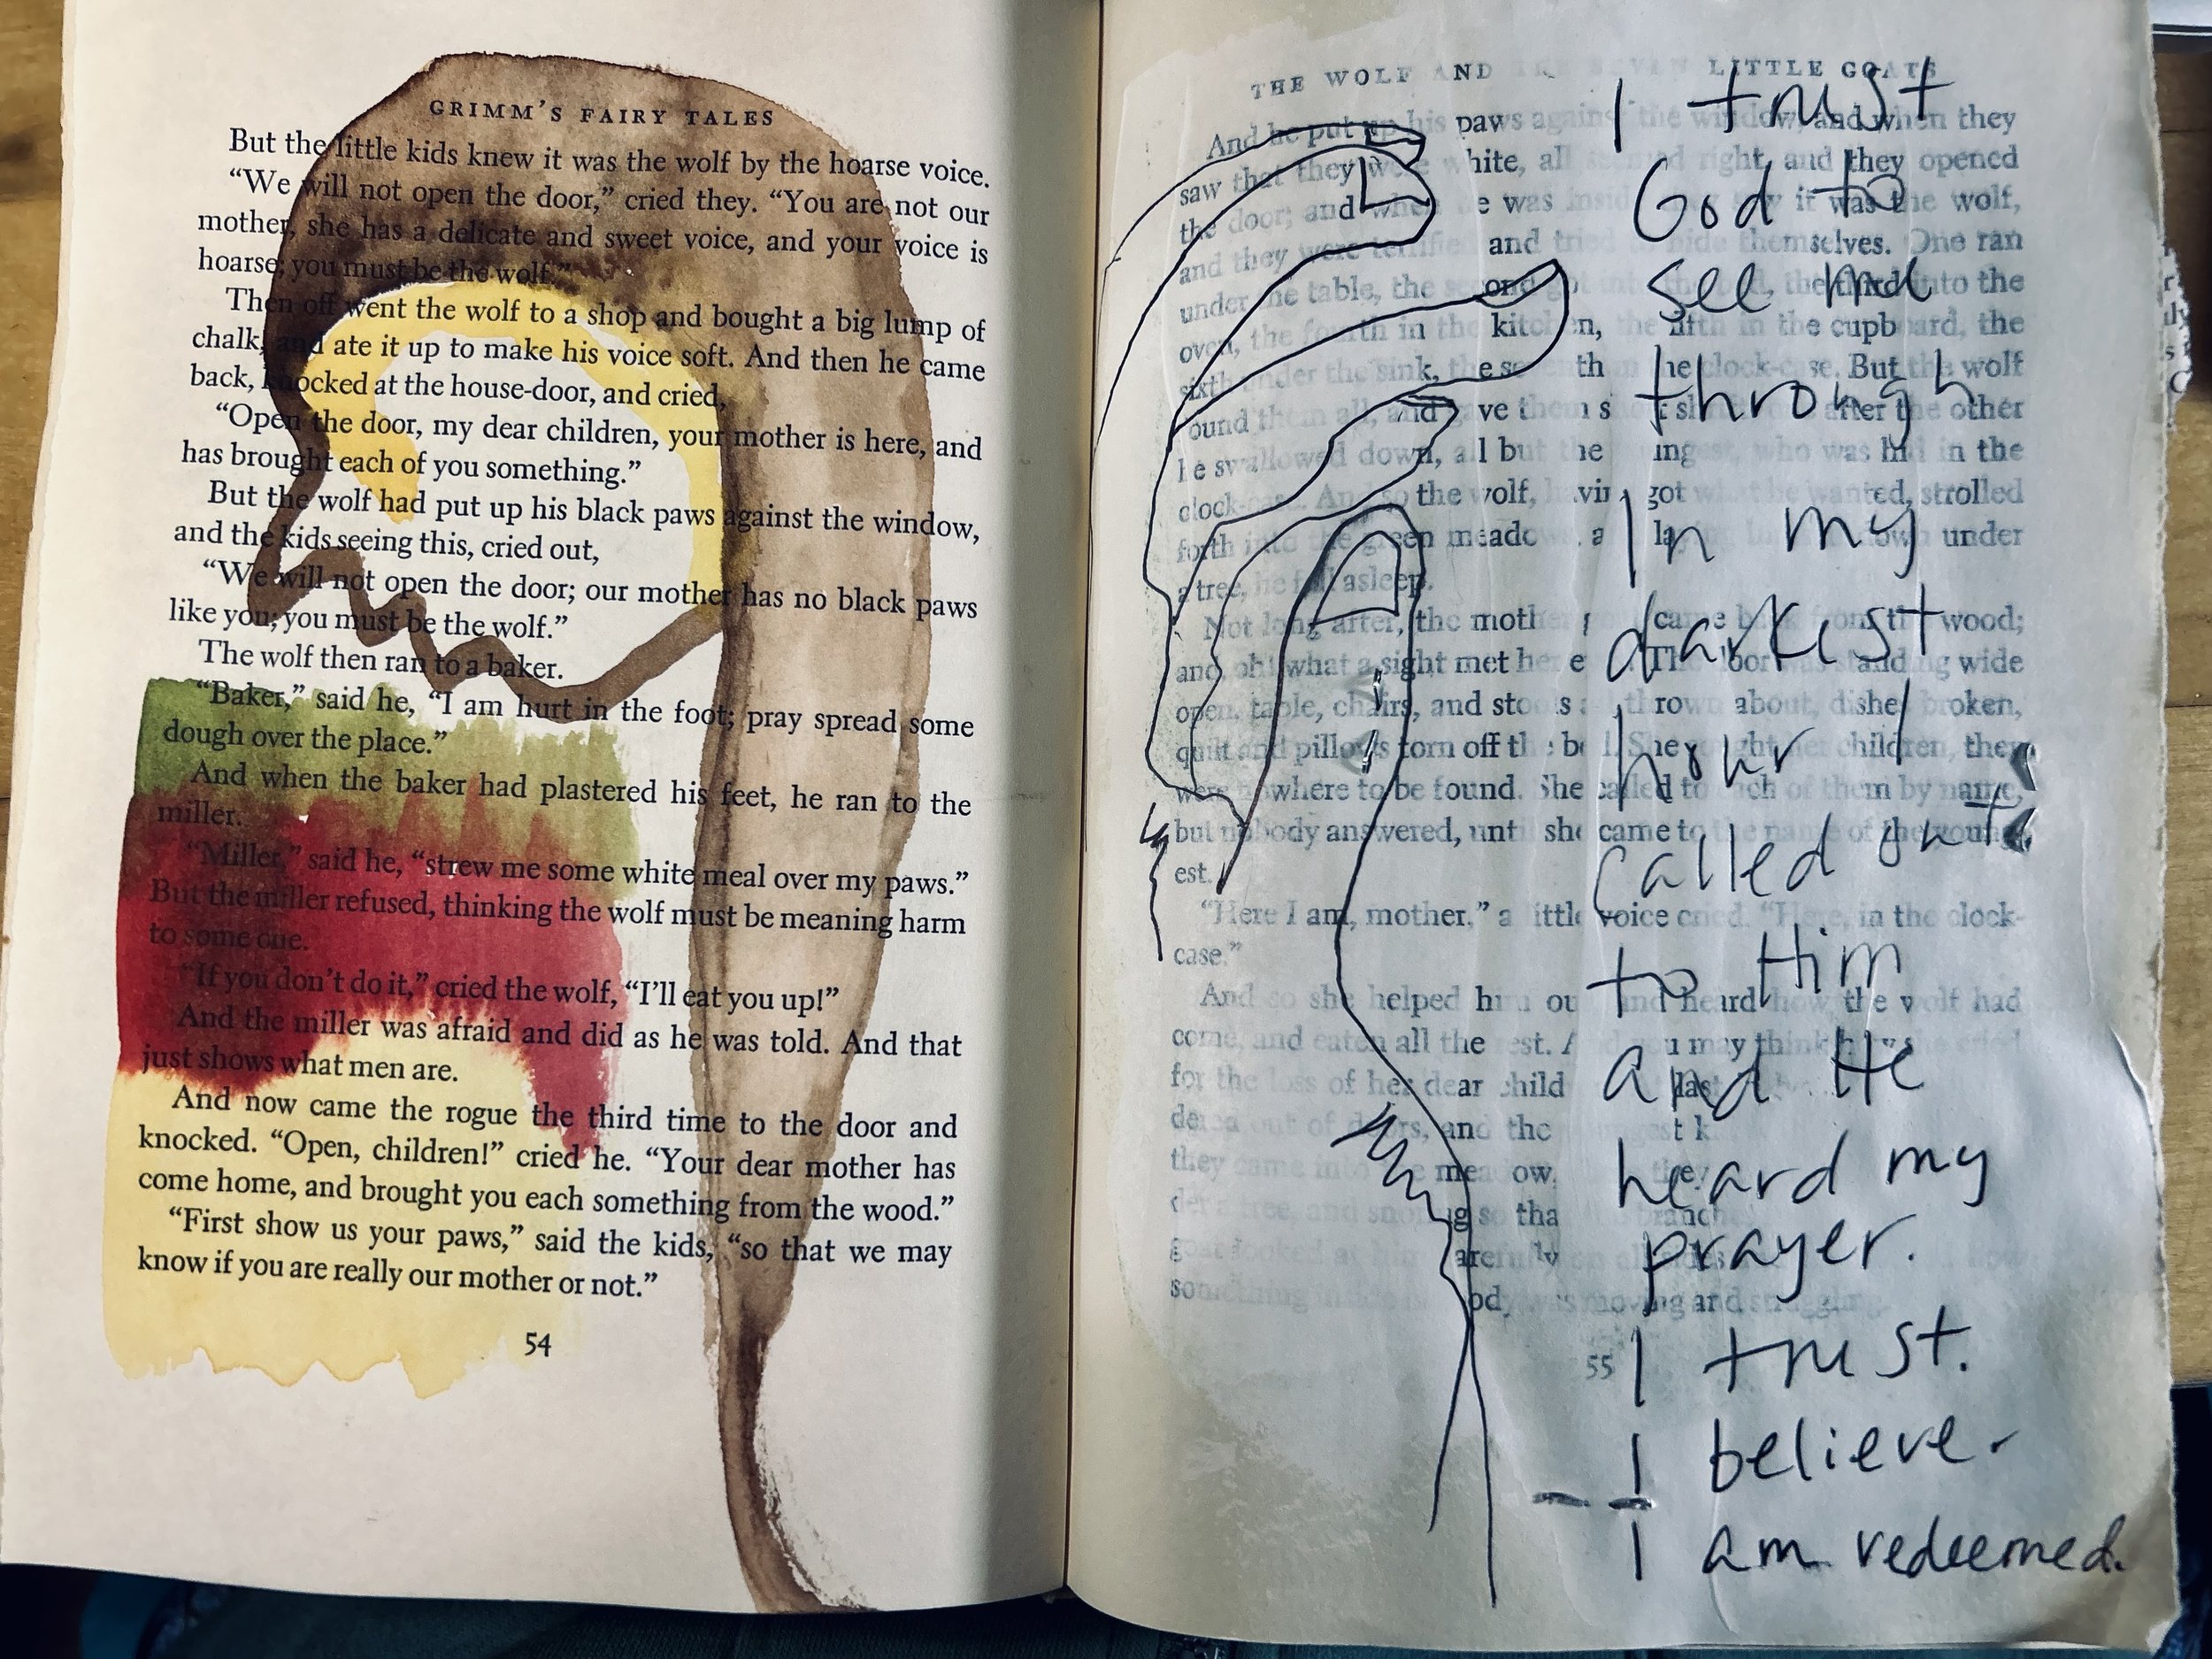 GRIMM'S FAIRY TALES
But the little kids knew it was the wolf by the hoarse voice.
"We will not open the door," cried they. "You are not our
mother, she has a delicate and sweet voice, and your voice is
hoarse; you must be the wolf."
Then off went the wolf to a shop and bought a big lump of
chalk, and ate it up to make his voice soft. And then he came
back, knocked at the house-door, and cried,
"Open the door, my dear children, your mother is here, and
has brought each of you something."
But the wolf had put up his black paws against the window,
and the kids seeing this, cried out,
"We will not open the door; our mother has no black paws
like you; you must be the wolf."
The wolf then ran to a baker.
"Baker," said he, "I am hurt in the foot; pray spread some
dough over the place."
And when the baker had plastered his feet, he ran to the
miller.
"Miller," said he, "strew me some white meal over my paws."
But the miller refused, thinking the wolf must be meaning harm
to some one.
"If you don't do it," cried the wolf, "I'll eat you up!"
And the miller was afraid and did as he was told. And that
just shows what men are.
And now came the rogue the third time to the door and
knocked. "Open, children!" cried he. "Your dear mother has
come home, and brought you each something from the wood."
"First show us your paws," said the kids, "so that we may
know if you are really our mother or not."
54
THE WOLF AND THE SEVEN LITTLE GOATS
And he put up his paws against the window, and when they
saw that they were white, all seemed right, and they opened
the door; and when he was inside they saw it was the wolf,
and they were terrified and tried to hide themselves. One ran
under the table, the second got into the bed, the third into the
oven, the fourth in the kitchen, the fifth in the cupboard, the
sixth under the sink, the seventh in the clock-case. But the wolf
found them all, and gave them short shrift; one after the other
he swallowed down, all but the youngest, who was hid in the
clock-case. And so the wolf, having got what he wanted, strolled
forth into the green meadows, and laying himself down under
a tree, he fell asleep.
Not long after, the mother goat came back from the wood;
and, oh! what a sight met her eyes! The door was standing wide
open, table, chairs, and stools thrown about, dishes broken,
quilt and pillows torn off the bed. She sought her children, they
were nowhere to be found. She called to each of them by name,
but nobody answered, until she came to the name of the young-
est.
"Here I am, mother," a little voice cried. "Here, in the clock-
case."
And so she helped him out, and heard how the wolf had
come, and eaten all the rest. And you may think how she cried
for the loss of her dear children. At last
out of doors, and the youngest
they came into the meadow,
der a tree, and snoring so that the branches
goat looked at him carefully on all sides
something inside his body was moving and struggling.
55
I trust
God to
see me
through
In my
darkest
hour I
called out
to Him
and He
heard my
prayer.
I trust.
I believe.
I am redeemed.